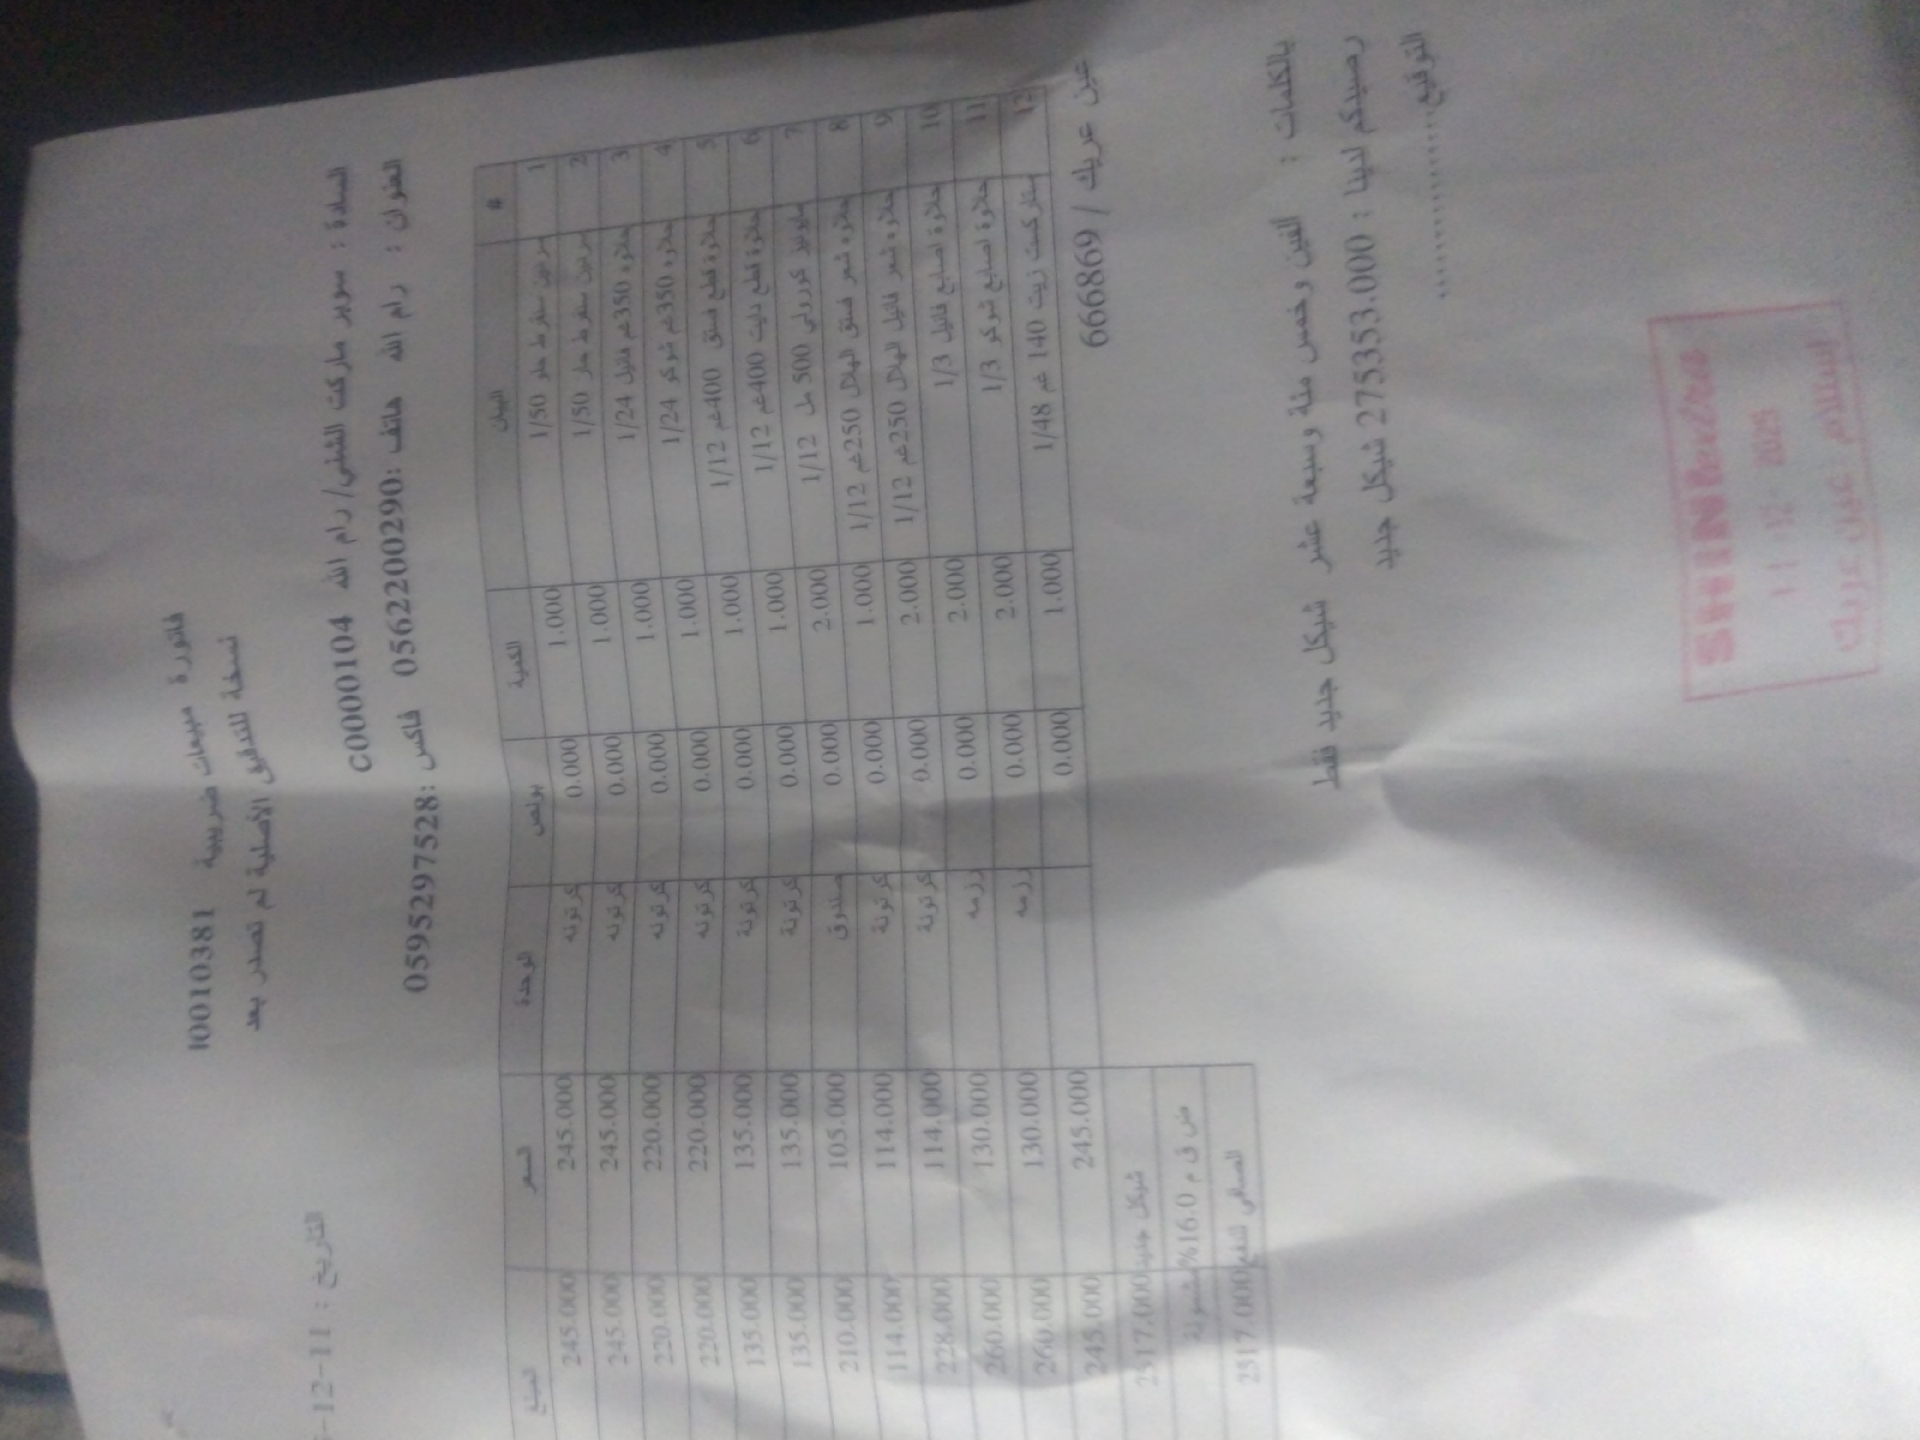 فاتورة مبيعات ضريبية I0010381
نسخة للتدقيق الأصلية لم تصدر بعد
التاريخ : 11-12-
السادة : سوبر ماركت الشلبي/ رام الله C0000104
العنوان : رام الله هاتف :0562200290 فاكس :0595297528
# البيان الكمية بونص الوحدة السعر المبلغ
1 سردين سفرط حلو 1/50 1.000 0.000 كرتونه 245.000 245.000
2 سردين سفرط حار 1/50 1.000 0.000 كرتونه 245.000 245.000
3 حلاوه 350غم فانيل 1/24 1.000 0.000 كرتونه 220.000 220.000
4 حلاوه 350غم شوكو 1/24 1.000 0.000 كرتونه 220.000 220.000
5 حلاوة قطع فستق 400غم 1/12 1.000 0.000 كرتونة 135.000 135.000
6 حلاوة قطع دايت 400غم 1/12 1.000 0.000 كرتونة 135.000 135.000
7 500 مل 1/12 2.000 0.000 صندوق 105.000 210.000
8 حلاوه شعر فستق الهلال 250غم 1/12 1.000 0.000 كرتونة 114.000 114.000
9 حلاوه شعر فانيل الهلال 250غم 1/12 2.000 0.000 كرتونة 114.000 228.000
10 حلاوة اصابع فانيل 1/3 2.000 0.000 رزمه 130.000 260.000
11 حلاوة اصابع شوكو 1/3 2.000 0.000 رزمه 130.000 260.000
12 ستاركست زيت 140 غم 1/48 1.000 0.000 245.000 245.000
شيكل جديد 2517.000
ض ق م 16.0% مشمولة
الصافي للدفع 2517.000
عين عريك / 6668669
بالكلمات : الفين وخمس مئة وسبعة عشر شيكل جديد فقط
رصيدكم لدينا : 275353.000 شيكل جديد
التوقيع ....................
11-12-2025
استلام عين عريك